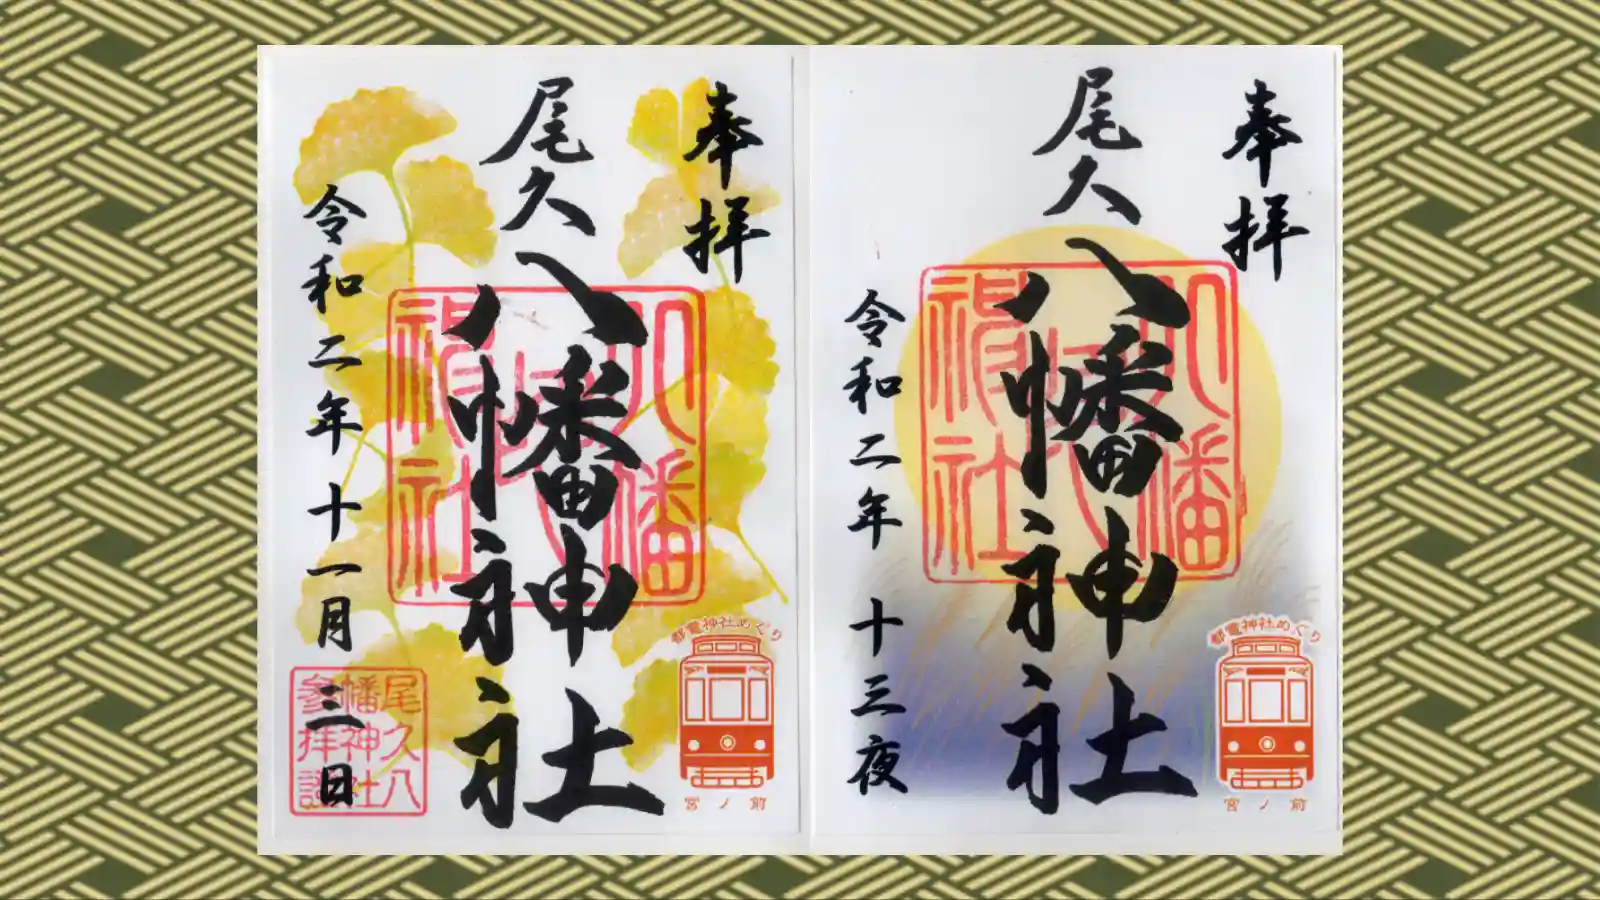 奉拝
尾久八幡神社
令和二年十一月三日
八幡
神社
尾久八
幡神社
参拝證
都電神社めぐり
宮ノ前
奉拝
尾久八幡神社
令和二年 十三夜
八幡
神社
都電神社めぐり
宮ノ前